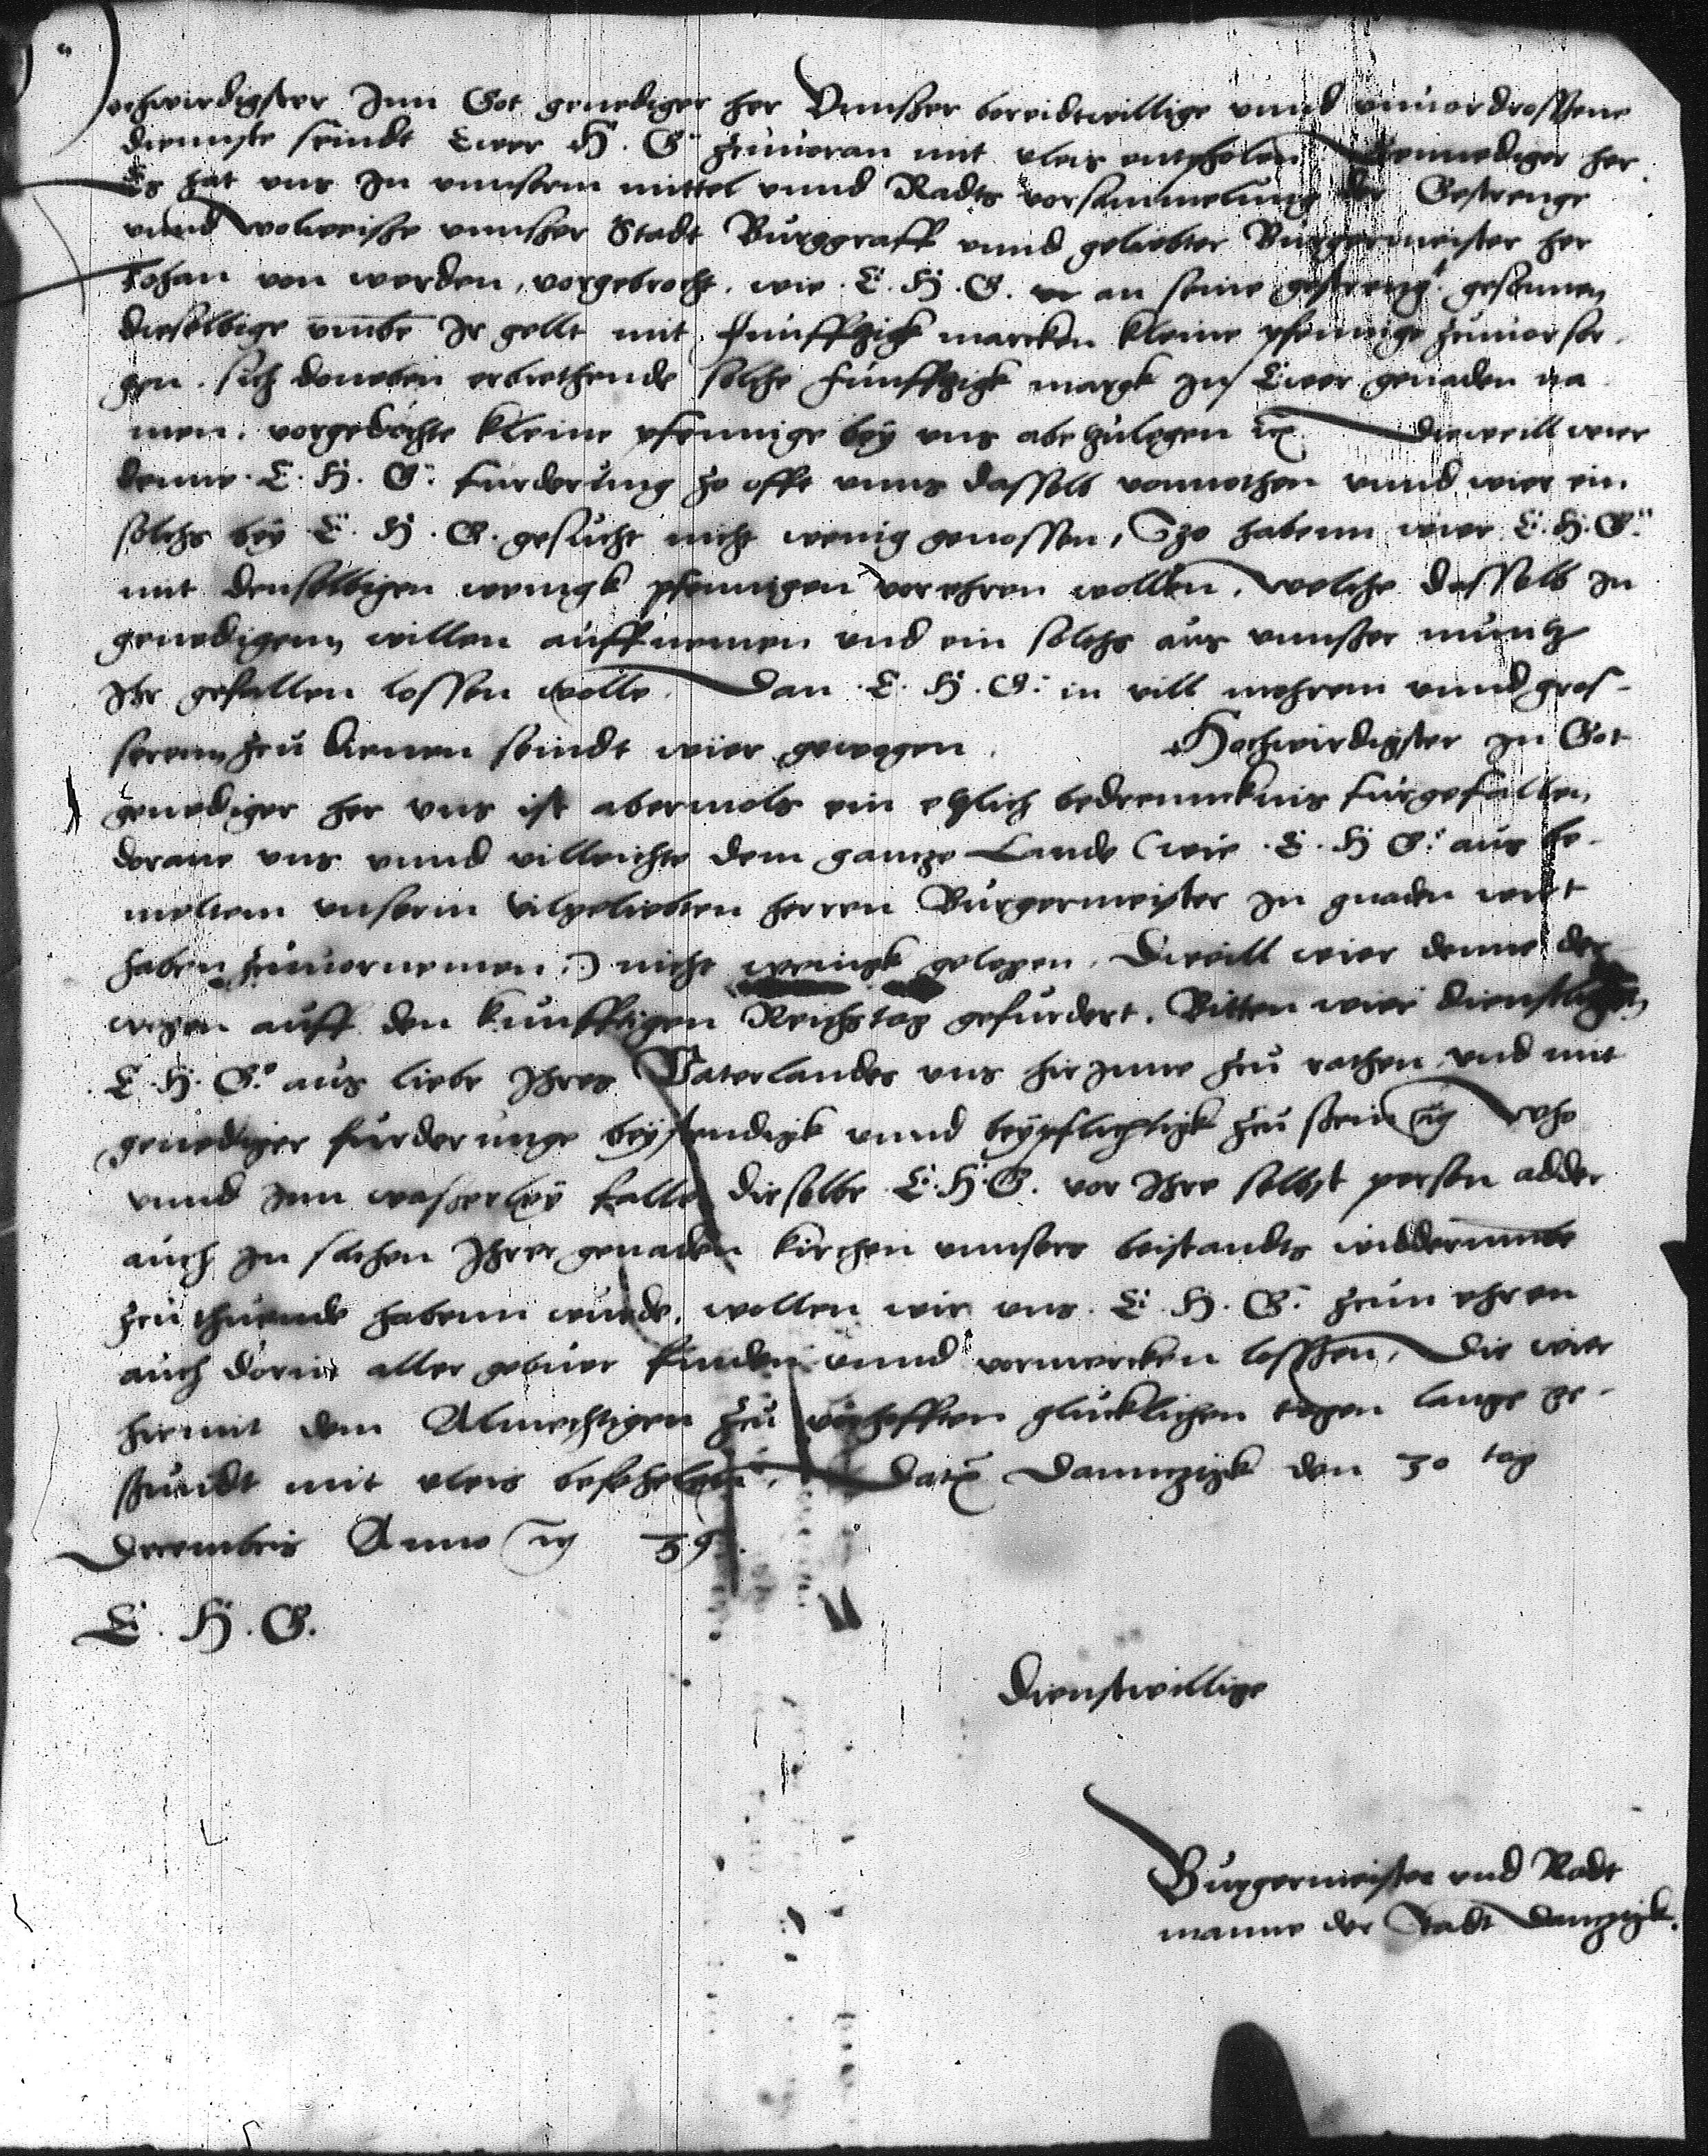 Hochwirdigster Inn Got genediger her Vnnßer bereidtwillige vnnd vnuordroßene
diennste seindt Ewer H. G. zeuuoran mit vleis entpholen Gennediger her
Es hat vns In vnnserm mittel vnnd Radts vorsammelung der Gestrenge
vnnd wolweiße vnnßer Stadt Burggraff vnnd geliebter Burgermeister her
Johan von werden, vorgebrocht, wie E. H. G. an seine gestreng. gesonnen
dieselbige vmbe Ir gellt mit funffzigk marcken kleine pfennige zeuuorsor-
gen. sich doneben erbiethende solche funffzigk margk In Ewer genaden na
men. vorgedochte kleine pfennige bey vns abezulegen etc. Dieweill wier
denne E. H. G. furderung zo offt vnns dasselb vonnothen vnnd wier ein
solchs bey E. H. G. gesucht nicht wenig genossen, Szo habenn wier E. H. G.
mit denselbigen wenigk pfennigen vorehren wollen, welche dasselb In
genedigenn willen auffnemen vnd ein solchs aus vnnßer muntz
Ihr gefallen lossen wolle. Dan E. H. G. in vill mehrem vnnd gros-
serem zeu dienen seindt wier gewogen. Hochwirdigster In Got
genediger her vns ist abermols ein etzlich bedrenncknis furgefallen,
dorane vns vnnd villeichte dem gantze Lande (wie E. H. G. aus be-
meltem vnserm vilgeliebten herren Burgermeister In gnaden wirt
haben zeuuornemen:) nicht wenigk gelegen. Dweill wier denne des-
wegen auff den kunfftigen Reichstag gefurdert. Bitten wier dienstlichen
E. H. G. aus liebe Ihres Vaterlandes vns hir Inne zeu rathen vnd mit
genediger furderunge beystendigk vnnd beypflichtigk zeu sein etc. Who
vnnd Inn waßerley falle dieselbe E. H. G. vor Ihre selbst person adder
auch In sachen Ihrer genaden kirchen vnnsers beistandts widderumbe
zeu thuende habenn wurde, wollen wir vns E. H. G. zeun ehren
auch dorin aller gebuer finden vnnd vormercken loßßen, Die wier
hirmit dem Almechtigen zeu vorhofften glucklichen tagen lange ge-
sundt mit vleis befehelen. Dat. Danntzigk den 30 tag
Decembris Anno etc. 39.
E. H. G.
Dienstwillige
Burgermeister vnd Radt
manne der Stadt Dantzigk.